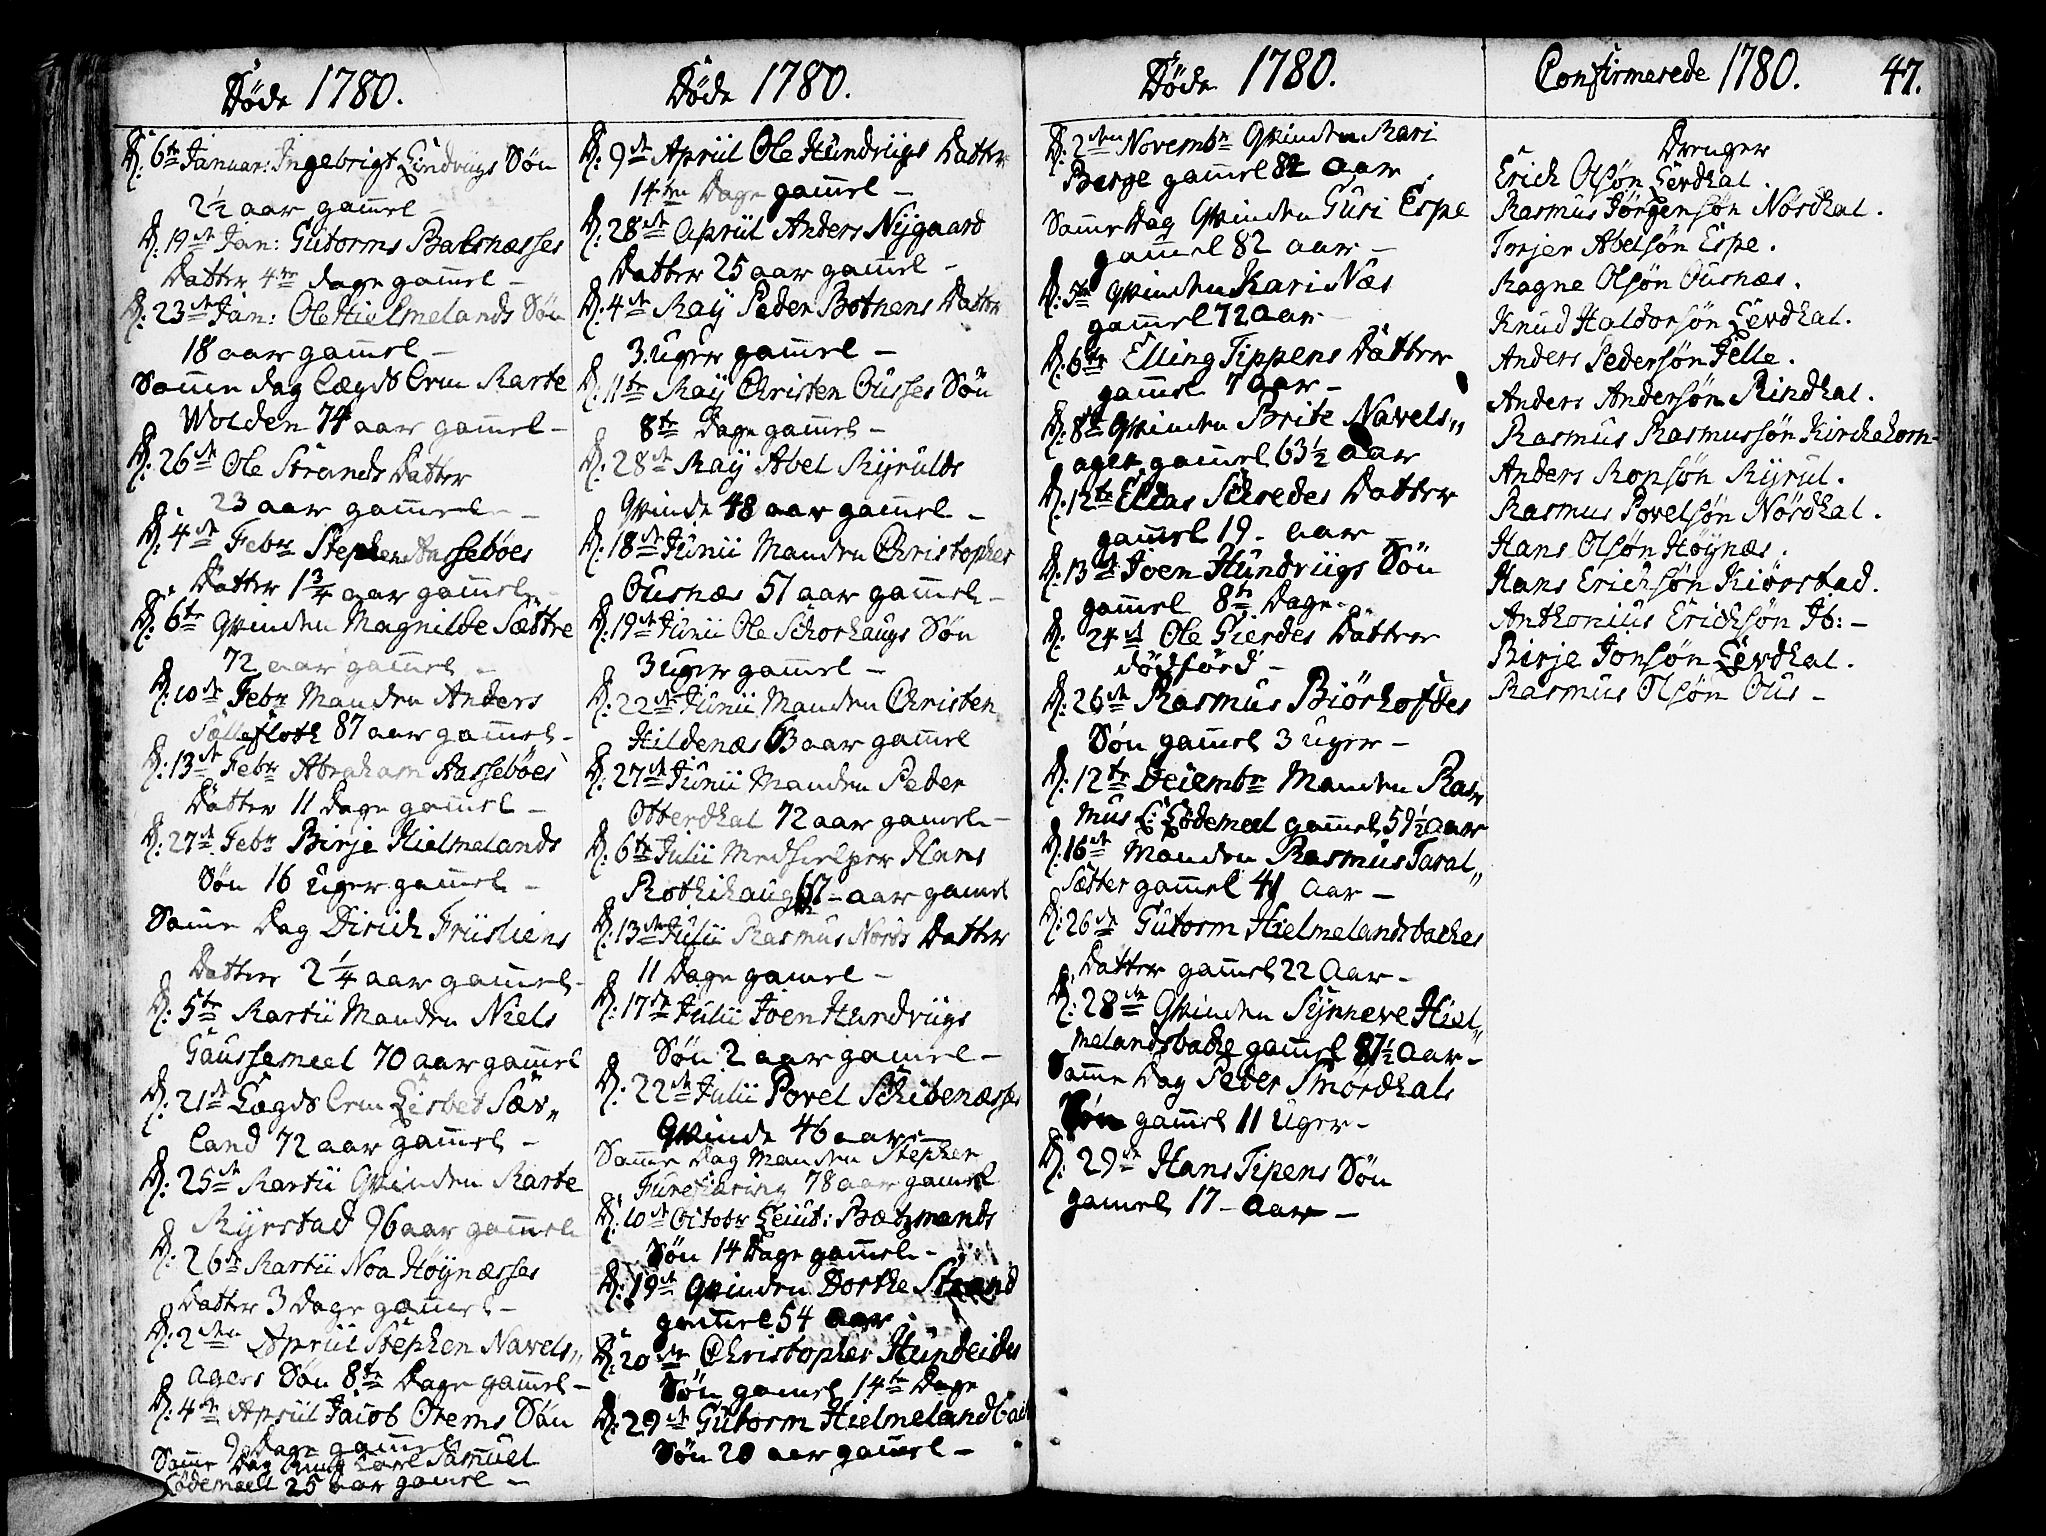 Döde 1780.
D: 6te Januar: Ingebrigt Lindviigs Søn
2½ aar gam̄el
D: 19de Jan: Gutorms Balsnæsses
Datter 4re dage gam̄el –
D: 23de Jan: Ole Hielmelands Søn
18 aar gam̄el –
Sam̄e dag Lægds Lem Marte
Wolden 74 aar gam̄el –
D: 26de Ole Strands Datter
23 aar gam̄el –
D: 4de Febr Stephen Aassebøes
Datter 1¾ aar gam̄el
D: 6te Qvinden Magnilde Sættre
72 aar gam̄el –
D: 10de Febr Manden Anders
Sølleflotk 87 aar gam̄el –
D: 13de Febr Abraham Aassebøes
Datter 11 Dage gam̄el –
D: 27de Febr Birje Hielmelands
Søn 16 Uger gam̄el –
Sam̄e Dag Dirich Friisliens
Datter 2¼ aar gam̄el –
D: 5te Martii Manden Niels
Gaussemeel 70 aar gam̄el
D: 21de Lægds Lem Lisbet Sæv„
land 72 aar gam̄el –
D: 25de Martii Qvinden Marte
Myrstad 96 aar gam̄el
D: 26de Martii Noa Høynæsses
Datter 3 Dage gam̄el –
D: 2den Apriil Stephen Navels„
agers Søn 8te Dage gam̄el –
D: 4de Apriil Jacob Orems Søn
9 Dage gam̄el
Sam̄e Dag Carl Samuel
Lødemeel 25 aar gam̄el –
Döde 1780.
D: 9de Apriil Ole Hundviigs Datter
14ten Dage gam̄el –
D: 28de Apriil Anders Nygaard
Datter 25 aar gam̄el –
D: 4de May Peder Bothens Datter
3. Uger gam̄el –
D: 11te May Christen Ousses Søn
8te Dage gam̄el –
D: 28de May Abel Myrulds
Qvinde 48 aar gam̄el –
D: 18de Junii Manden Christopher
Ousnæs 51 aar gam̄el –
D: 19de Junii Ole Schorhaugs Søn
3 Uger gam̄el –
D: 22de Junii Manden Christen
Hildenæs 63 aar gam̄el
D: 27de Junii Manden Peder
Otterdhal 72 aar gam̄el –
D: 6te Julii Medhielper Hans
Rothihaug 67 – aar gam̄el
D: 13de Julii Rasmus Nords Datter
11 Dage gam̄el –
D: 17de Julii Joen Hundviigs
Søn 2 aar gam̄el –
D: 22de Julii Povel Schibenæsses
Qvinde 46 aar –
Sam̄e Dag Manden Stephen
Furekiaring 78 aar gam̄el
D: 10de Octobr Leiut: Bætzmands
Søn 14 Dage gam̄el –
D: 19de Qvinden Dorthe Strand
gam̄el 54 aar
D: 20de Christopher Hundeides
Søn gam̄el 14te Dage
D: 29de Gutorm Hielmelandbach
Søn 20 aar gam̄el –
Döde 1780.
D: 2den Novembr Qvinden Mari
Berge gam̄el 82 aar
Sam̄e Dag Qvinden Guri Espe
gam̄el 82 aar –
D: 5te Qvinden Kari Næs
gam̄el 72 Aar
D: 6te Elling Tippens Datter
gam̄el 7 aar –
D: 8de Qvinden Brite Navels„
ager gam̄el 63½ aar
D: 12te Elias Schredes Datter
gam̄el 19 – aar –
D: 13de Joen Hundviigs Søn
gam̄el 8te Dage
D: 24de Ole Gierdes Datter
dødførd –
D: 26de Rasmus Biørhofdes
Søn gam̄el 3 Uger –
D: 12te Decembr Manden Ras„
mus L: Lødemeel gam̄el 59½ aar
D: 16de Manden Rasmus Taral„
sætter gam̄el 41 Aar –
D: 26de Gutorm Hielmelandsbackes
Datter gam̄el 22 Aar –
D: 28de Qvinden Synneve Hiel„
melandsbache gam̄el 87½ Aar –
Sam̄e Dag Peder Smørdhals
Søn gam̄el 11 Uger –
D: 29de Hans Tipens Søn
gam̄el 17 – Aar –
Confirmerede 1780.
47.
Drenger
Erich Olsøn Lerdhal.
Rasmus Jørgensøn Nørdhal.
Torjer Abelsøn Espe.
Ragne Olsøn Ousnæs.
Knud Haldorsøn Lerdhal.
Anders Pedersøn Felle.
Anders Andersøn Rindhal.
Rasmus Rasmussøn Kirchehorn
Anders Monsøn Myrul.
Rasmus Povelsøn Nørdhal.
Hans Olsøn Høynæs.
Hans Erichsøn Kiørstad.
Anthonius Erichsøn Ib: –
Birje Jonsøn Lerdhal.
Rasmus Olsøn Ous –